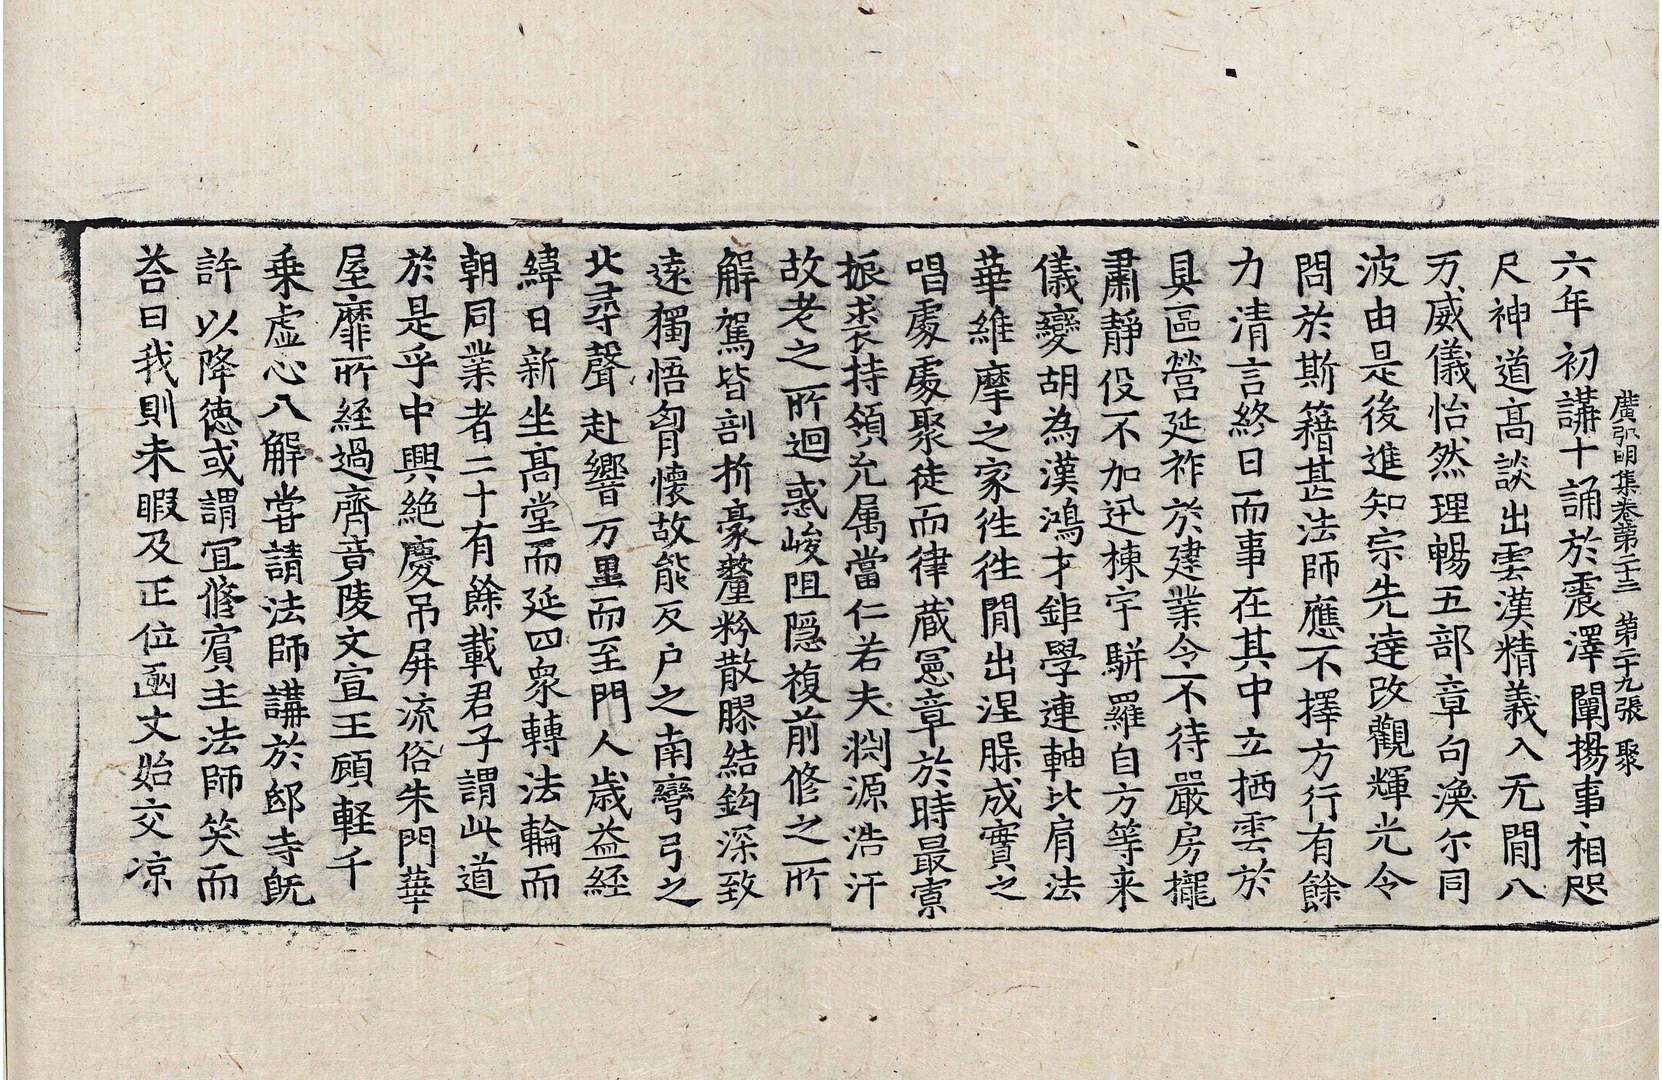 廣弘明集卷第二十三 第二十九張 聚
六年初講十誦於震澤闡揚事相咫
尺神道高談出雲漢精義入无閒八
万威儀怡然理暢五部章句渙尒同
波由是後進知宗先達改觀輝光令
問於斯籍甚法師應不擇方行有餘
力清言終日而事在其中立栖雲於
具區營延祚於建業令不待嚴房攏
肅靜役不加迅棟宇駢羅自方等来
儀變胡為漢鴻才鉅學連軸比肩法
華維摩之家徃徃閒出涅槃成實之
唱處處聚徒而律蔵憲章於時最寡
振裘持領允属當仁若夫淵源浩汗
故老之所迴惑峻阻隐複前修之所
解駕皆剖折豪釐粉散膠結鈎深致
遠獨悟匈懷故能反户之南彎弓之
北尋聲赴響万里而至門人歳益經
緯日新坐高堂而延四衆轉法輪而
朝同業者二十有餘載君子謂此道
於是乎中興絶慶吊屏流俗朱門華
屋靡所經過齊竟陵文宣王顧軽千
乗虚心八解嘗請法師講於邸寺旣
許以降德或謂冝修賔主法師笑而
荅曰我則未暇及正位函文始交凉